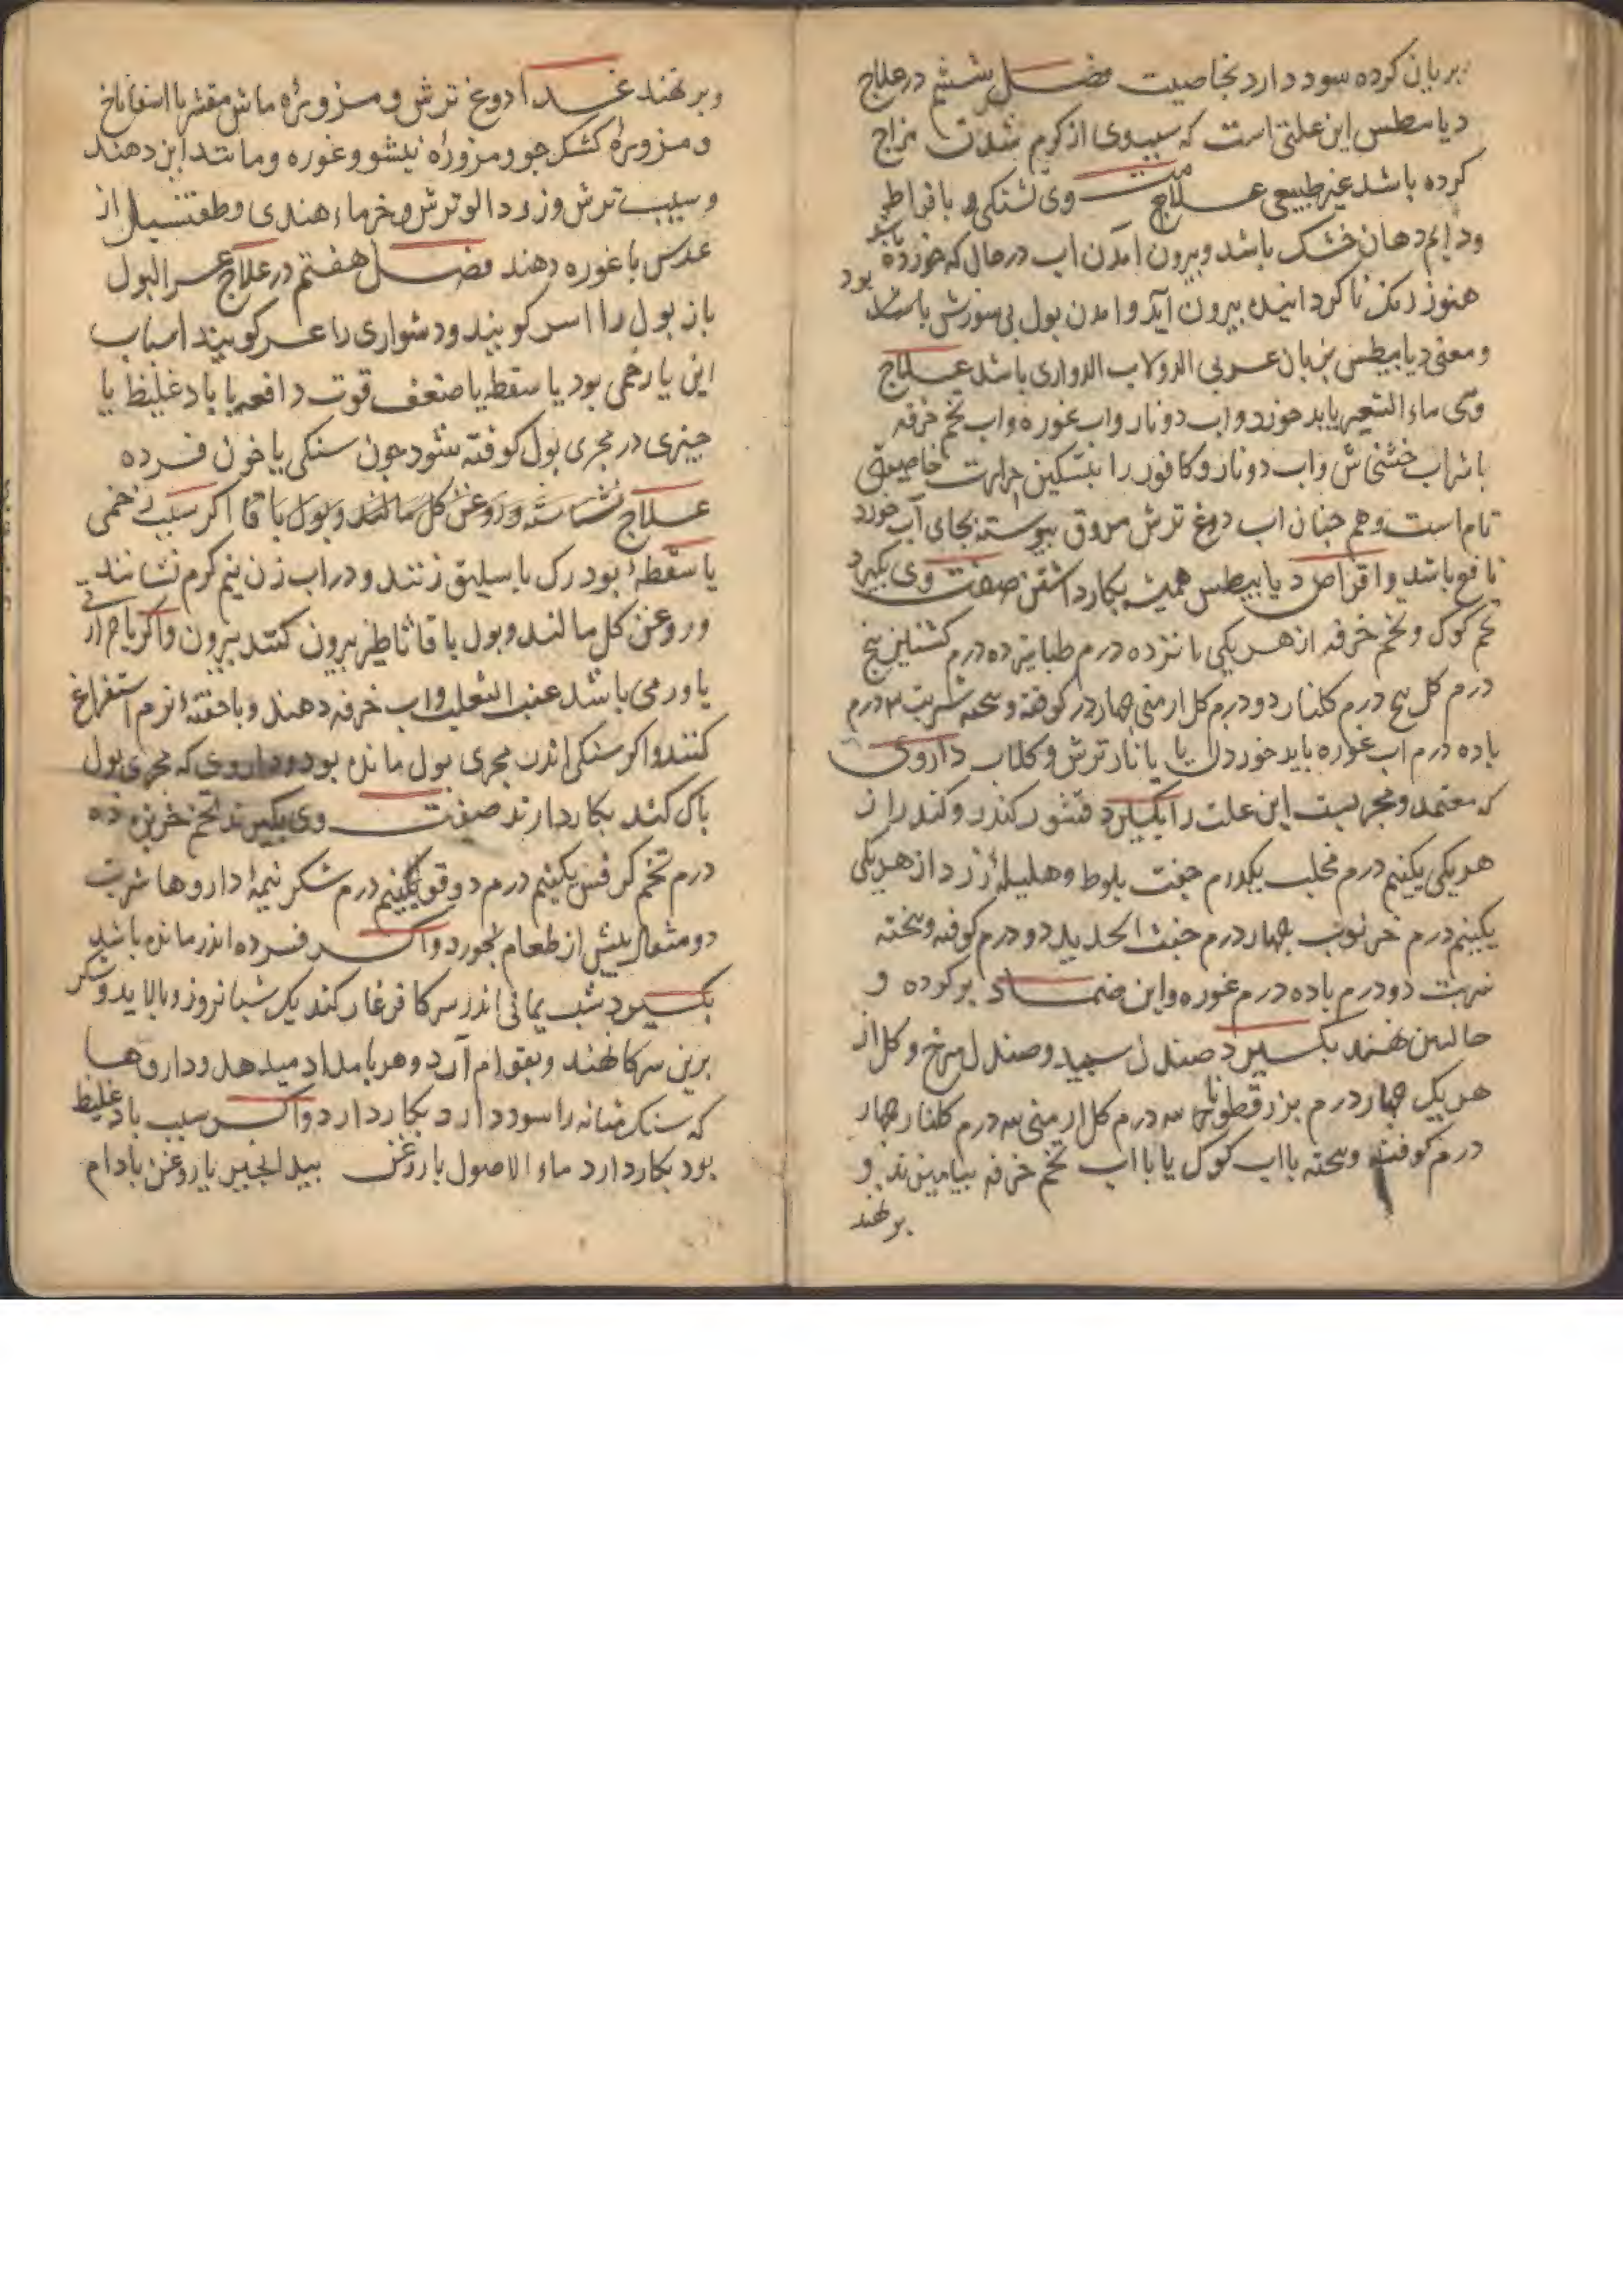 بریان کرده سود دارد بخاصیت فصل ششم در علاج
دیامطس این علتی است که سبب وی از کرم شدن مزاج
کرده باشد غیر طبیعی علامت وی تشنکی با فراط
ودایم دهان خشک باشد وبیرون امدن اب در حال که خورده باشد
هنوز رنک نا کردانیده بیرون آید وامدن بول بی سوزش بود
ومعنی دیابیطس بزبان عربی الدولاب الدواری باشد علاج
وی ماء الشعیر باید خورد واب دو نار واب غوره واب تخم خرفه
با شراب خشخاش واب دونار وکافور را بتسکین حرارت خاصیتی
تام است وهم چنان اب دوغ ترش مروق پیوسته بجای آب خورد
نافع باشد واقراص دیابیطس همیشه بکار داشتن صفت وی بکیرد
تخم کوک وتخم خرفه از هر یکی پانزده درم طباشیر ده درم کشنیز پنج
درم کل سرخ درم کلنار دو درم کل ارمنی چهار درم کوفته وبیخته شربت درم
با ده درم اب غوره باید خوردن یا با نار ترش وکلاب داروی
که معتمد ومجربست این علت را بکیرد قشور کندر وکندر از
هر یکی یکنیم درم محلب یکدرم جفت بلوط وهلیله زرد از هر یکی
یکنیم درم خرنوب چهار درم خبث الحدید دو درم کوفته وبیخته
شربت دو درم با ده درم غوره واین ضماد بر کرده و
بکیرد صندل سپید وصندل سرخ وکل از
هر یک چهار درم بزرقطونا سه درم کل ارمنی سه درم کلنار چهار
درم کوفته وبیخته با اب کوک یا با اب تخم خرفه بیامیزند و
بر نهند
وبر نهند غدا دوغ ترش ومزوره ماش مقشر با اسفاناخ
ومزوره کشک جو ومزوره نیشو وغوره ومانند این دهند
وسیب ترش وزرد الو ترش وخرماء هندی وطفشیل از
عدس با غوره دهند فصل هفتم در علاج عسر البول
باز بول را اسر کویند ودشواری را عسر کویند اسباب
این یا زخمی بود یا سقطه یا ضعف قوت دافعه یا باد غلیظ یا
چیزی در مجری بول کوفته شود چون سنکی یا خون فسرده
علاج نشاسته وروغن کل مالند وبول با قا اکر سبب زخمی
یا سقطه بود رک باسلیق زنند ودر اب زن نیم کرم نشانند
وروغن کل مالند وبول با قاثاطیر بیرون کنند بیرون واکر با حرارتی
یا ورمی باشد عنب الثعلب واب خرفه دهند وبا حقنه نرم استفراغ
کنند واکر سنکی اندر مجری بول مانده بود وداروی که مجری بول
پاک کند بکار دارند صفت وی بکیرند تخم خربزه ده
درم تخم کرفس یکنیم درم دوقو یکنیم درم شکر نیمه داروها شربت
دو مثقال پیش از طعام بخورد واکر فسرده اندر مانده باشد
بکیرد شب یمانی اندر سرکا فرغار کند یک شبانروز وبپالاید وشکر
برین سرکا نهند وبقوام آرد وهر بامداد میدهد وداروها
که سنک مثانه را سود دارد بکار دارد واکر سبب باد غلیظ
بود بکار دارد ماء الاصول با روغن بید انجیر یا روغن بادام